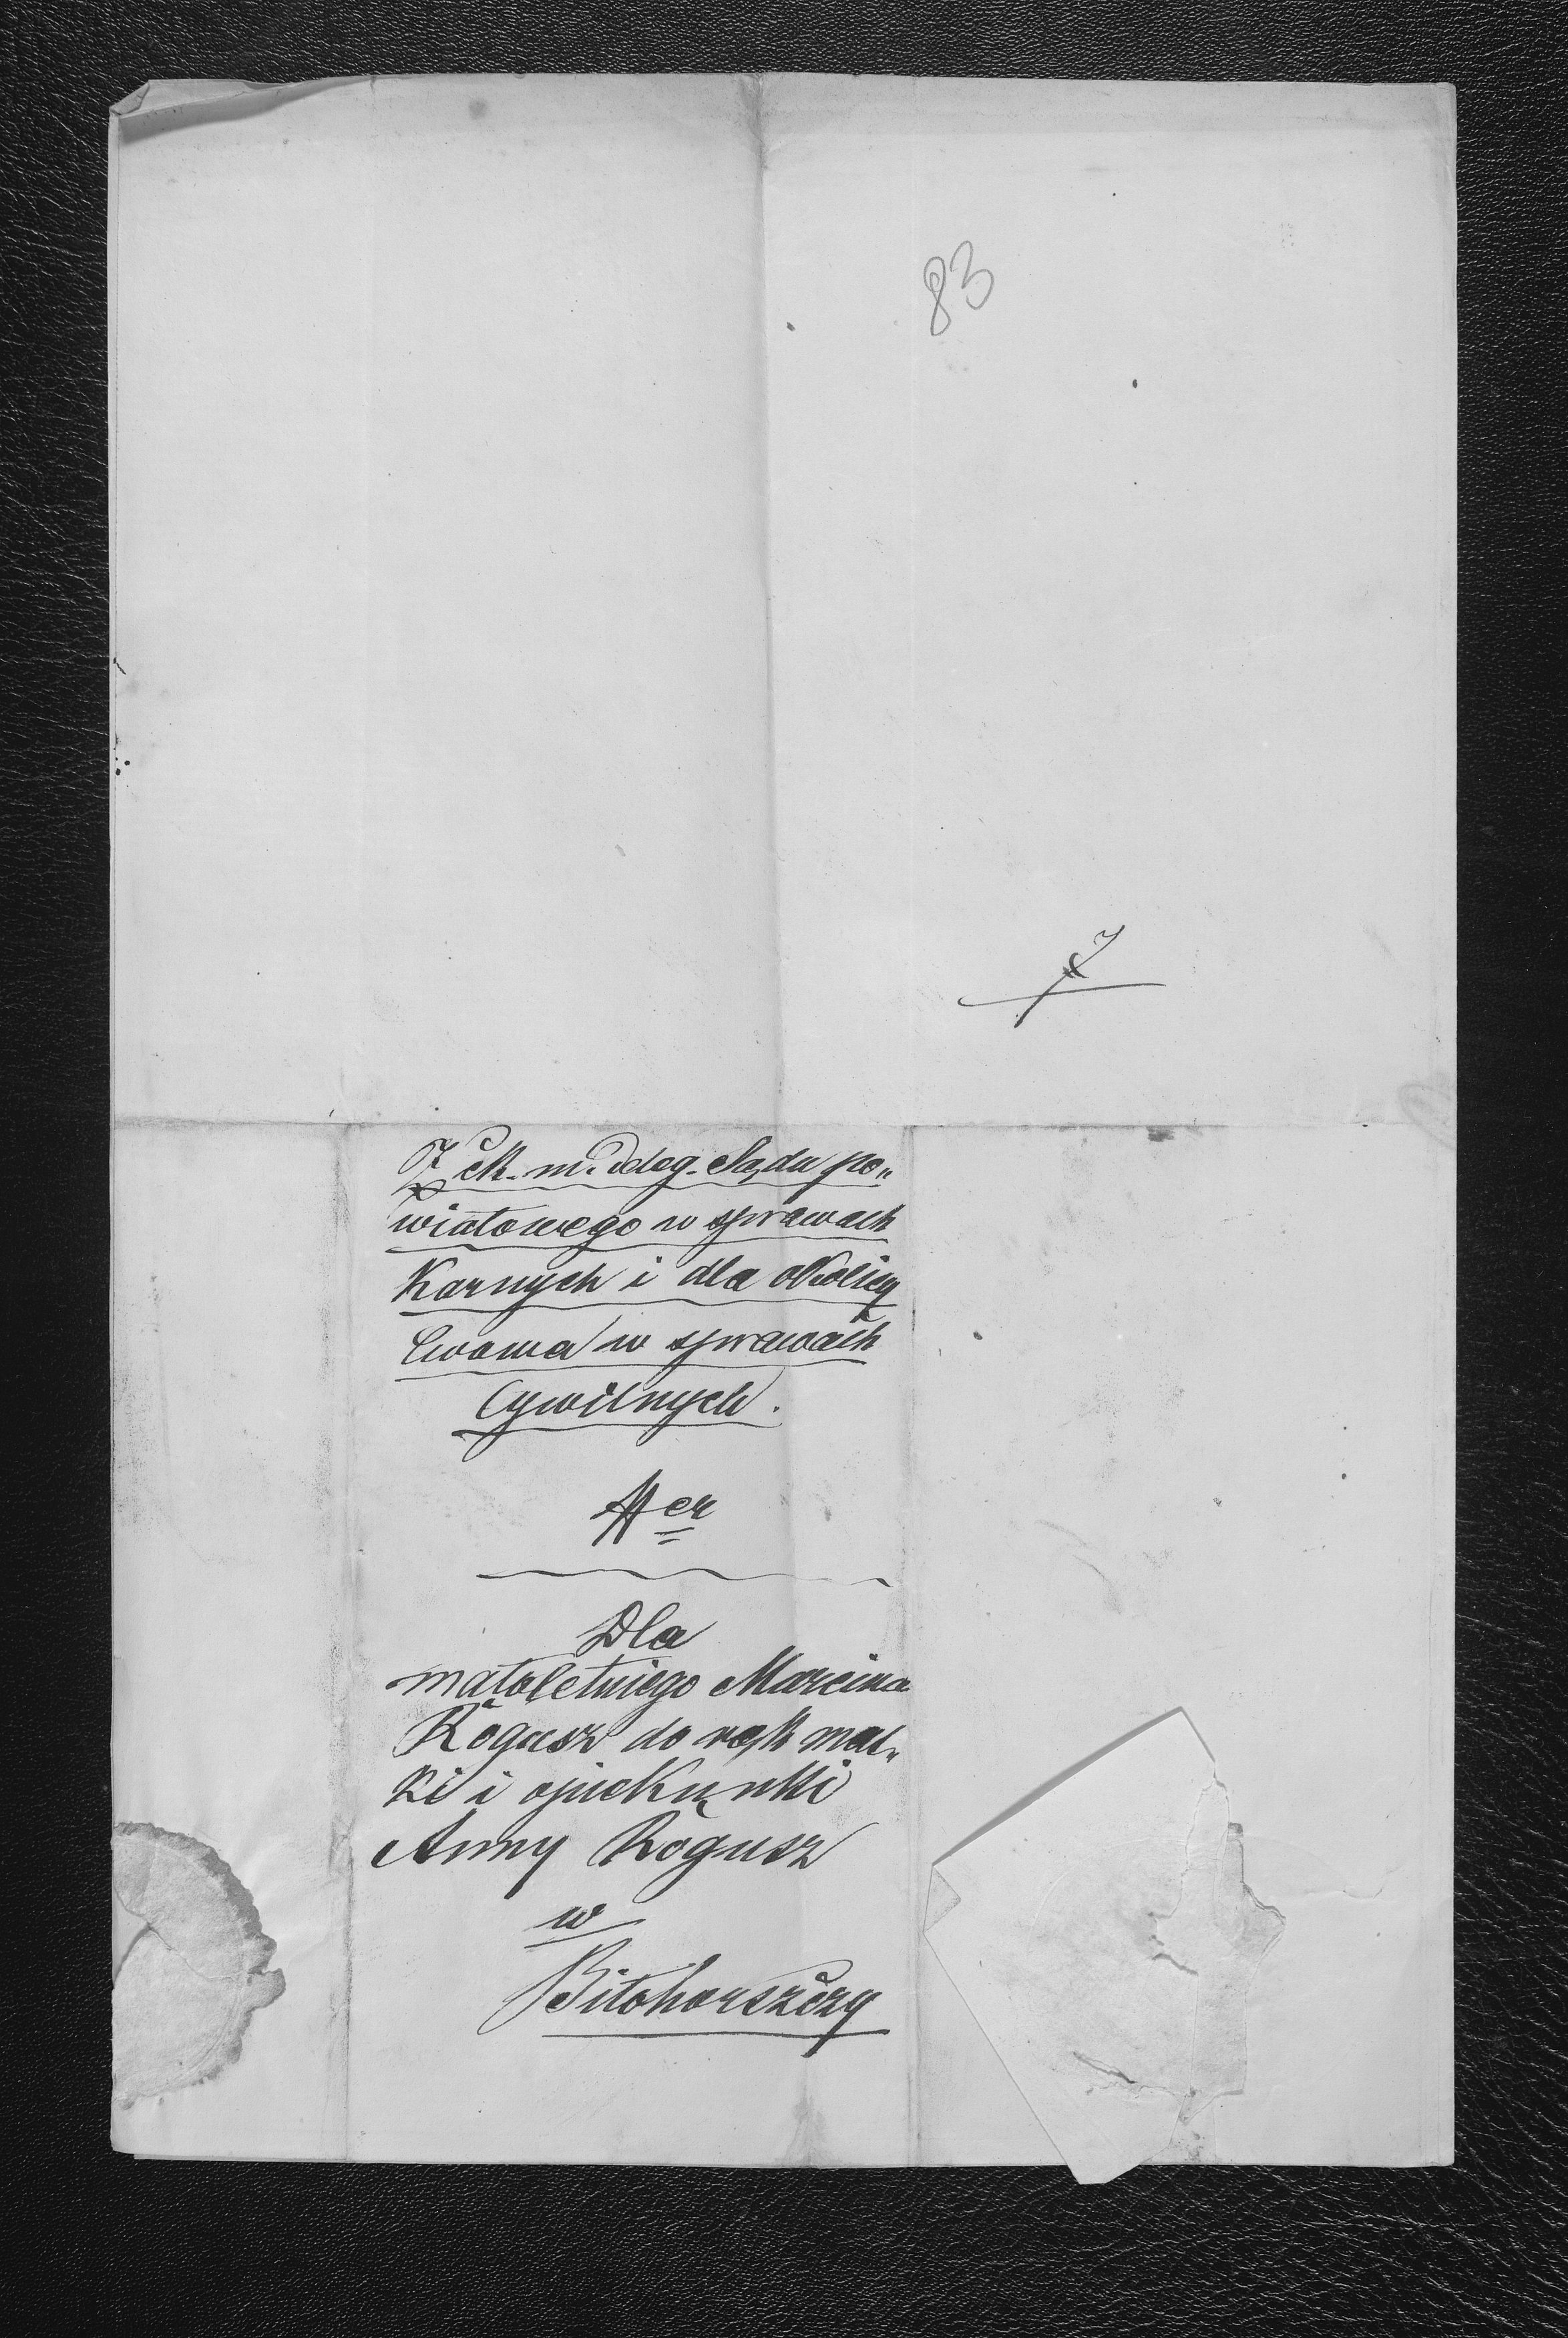 83
Z ck. m. deleg. Sądu po„
wiatowego w sprawach
Karnych i dla okolicy
Lwowa w sprawach
Cywilnych.
Dla
małoletniego Marcina
Rogusz do rąk mat„
ki i opiekunki
Anny Rogusz
w
Biłohorszczy